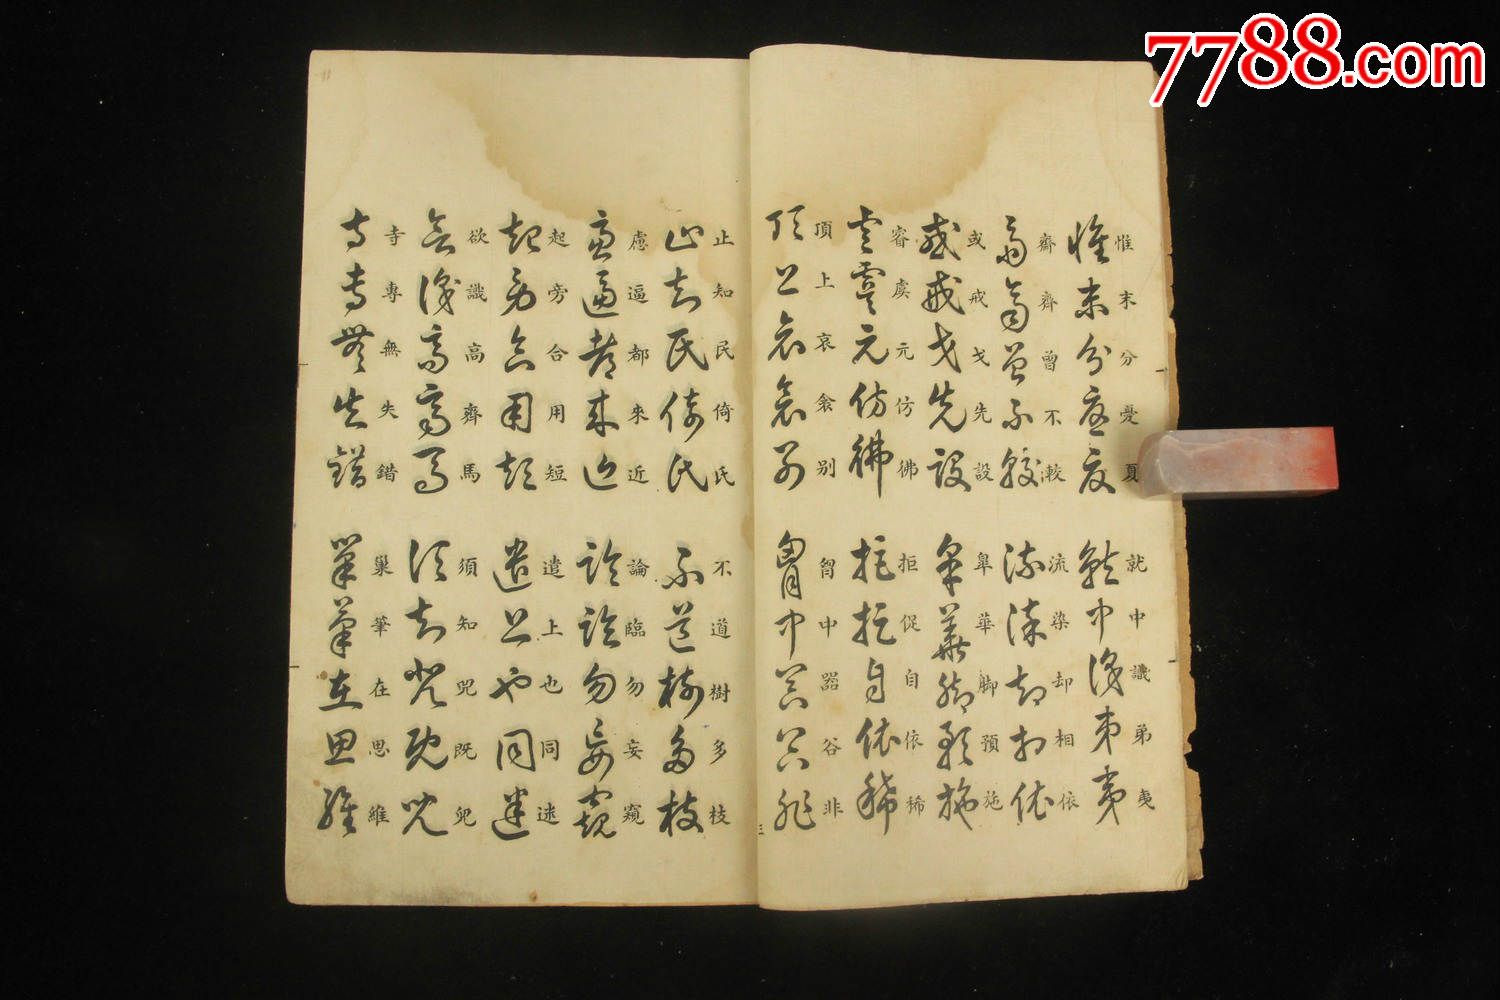 7788.com
惟末分憂夏
就中識弟夷
齊齊曾不較
流染却相依
或戒戈先設
皐華脚預施
睿虞元仿彿
拒促自依稀
頂上哀衾別
胷中器谷非
三
止知民倚氏
不道樹多枝
慮逼都來近
論臨勿妄窺
起旁合用短
遣上也同迷
欲識高齊馬
須知兕既兒
寺專無失錯
巢筆在思維